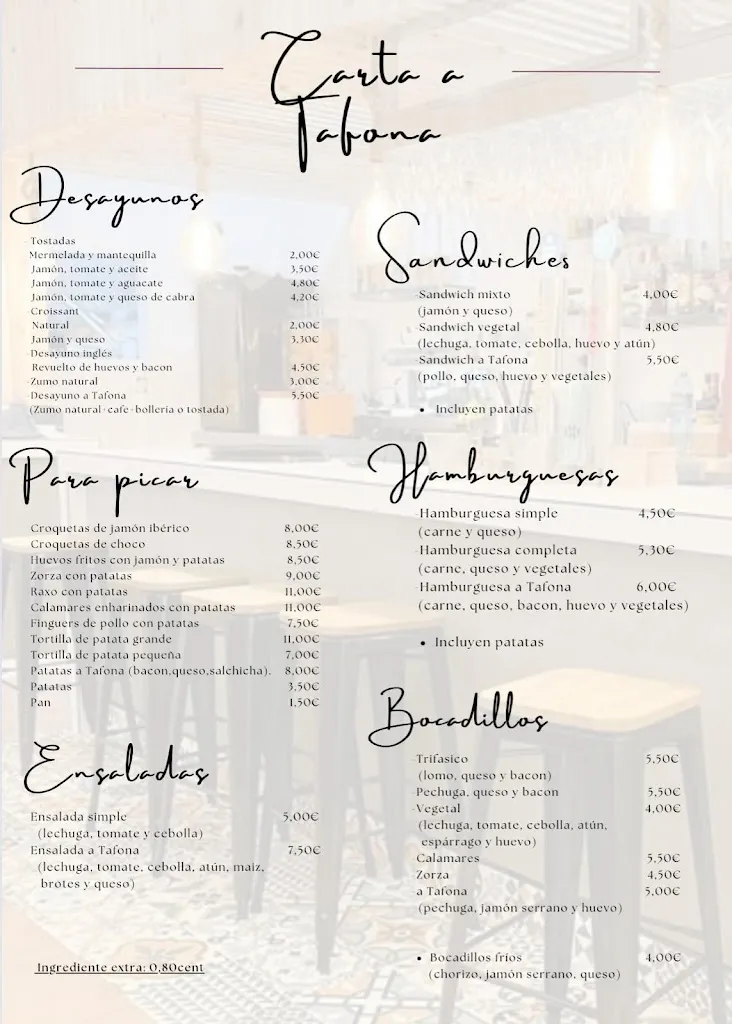 Carta a
Tafona
Desayunos
·Tostadas
Mermelada y mantequilla 2,00€
Jamón, tomate y aceite 3,50€
Jamón, tomate y aguacate 4,80€
Jamón, tomate y queso de cabra 4,20€
·Croissant
Natural 2,00€
Jamón y queso 3,30€
·Desayuno inglés
Revuelto de huevos y bacon 4,50€
·Zumo natural 3,00€
·Desayuno a Tafona 5,50€
(Zumo natural+cafe+bolleria o tostada)
Para picar
Croquetas de jamón ibérico 8,00€
Croquetas de choco 8,50€
Huevos fritos con jamón y patatas 8,50€
Zorza con patatas 9,00€
Raxo con patatas 11,00€
Calamares enharinados con patatas 11,00€
Finguers de pollo con patatas 7,50€
Tortilla de patata grande 11,00€
Tortilla de patata pequeña 7,00€
Patatas a Tafona (bacon,queso,salchicha). 8,00€
Patatas 3,50€
Pan 1,50€
Ensaladas
Ensalada simple 5,00€
(lechuga, tomate y cebolla)
Ensalada a Tafona 7,50€
(lechuga, tomate, cebolla, atún, maíz,
brotes y queso)
Ingrediente extra: 0,80cent
Sandwiches
·Sandwich mixto 4,00€
(jamón y queso)
·Sandwich vegetal 4,80€
(lechuga, tomate, cebolla, huevo y atún)
·Sandwich a Tafona 5,50€
(pollo, queso, huevo y vegetales)
• Incluyen patatas
Hamburguesas
·Hamburguesa simple 4,50€
(carne y queso)
·Hamburguesa completa 5,30€
(carne, queso y vegetales)
·Hamburguesa a Tafona 6,00€
(carne, queso, bacon, huevo y vegetales)
• Incluyen patatas
Bocadillos
·Trifasico 5,50€
(lomo, queso y bacon)
·Pechuga, queso y bacon 5,50€
·Vegetal 4,00€
(lechuga, tomate, cebolla, atún,
espárrago y huevo)
Calamares 5,50€
Zorza 4,50€
a Tafona 5,00€
(pechuga, jamón serrano y huevo)
• Bocadillos fríos 4,00€
(chorizo, jamón serrano, queso)